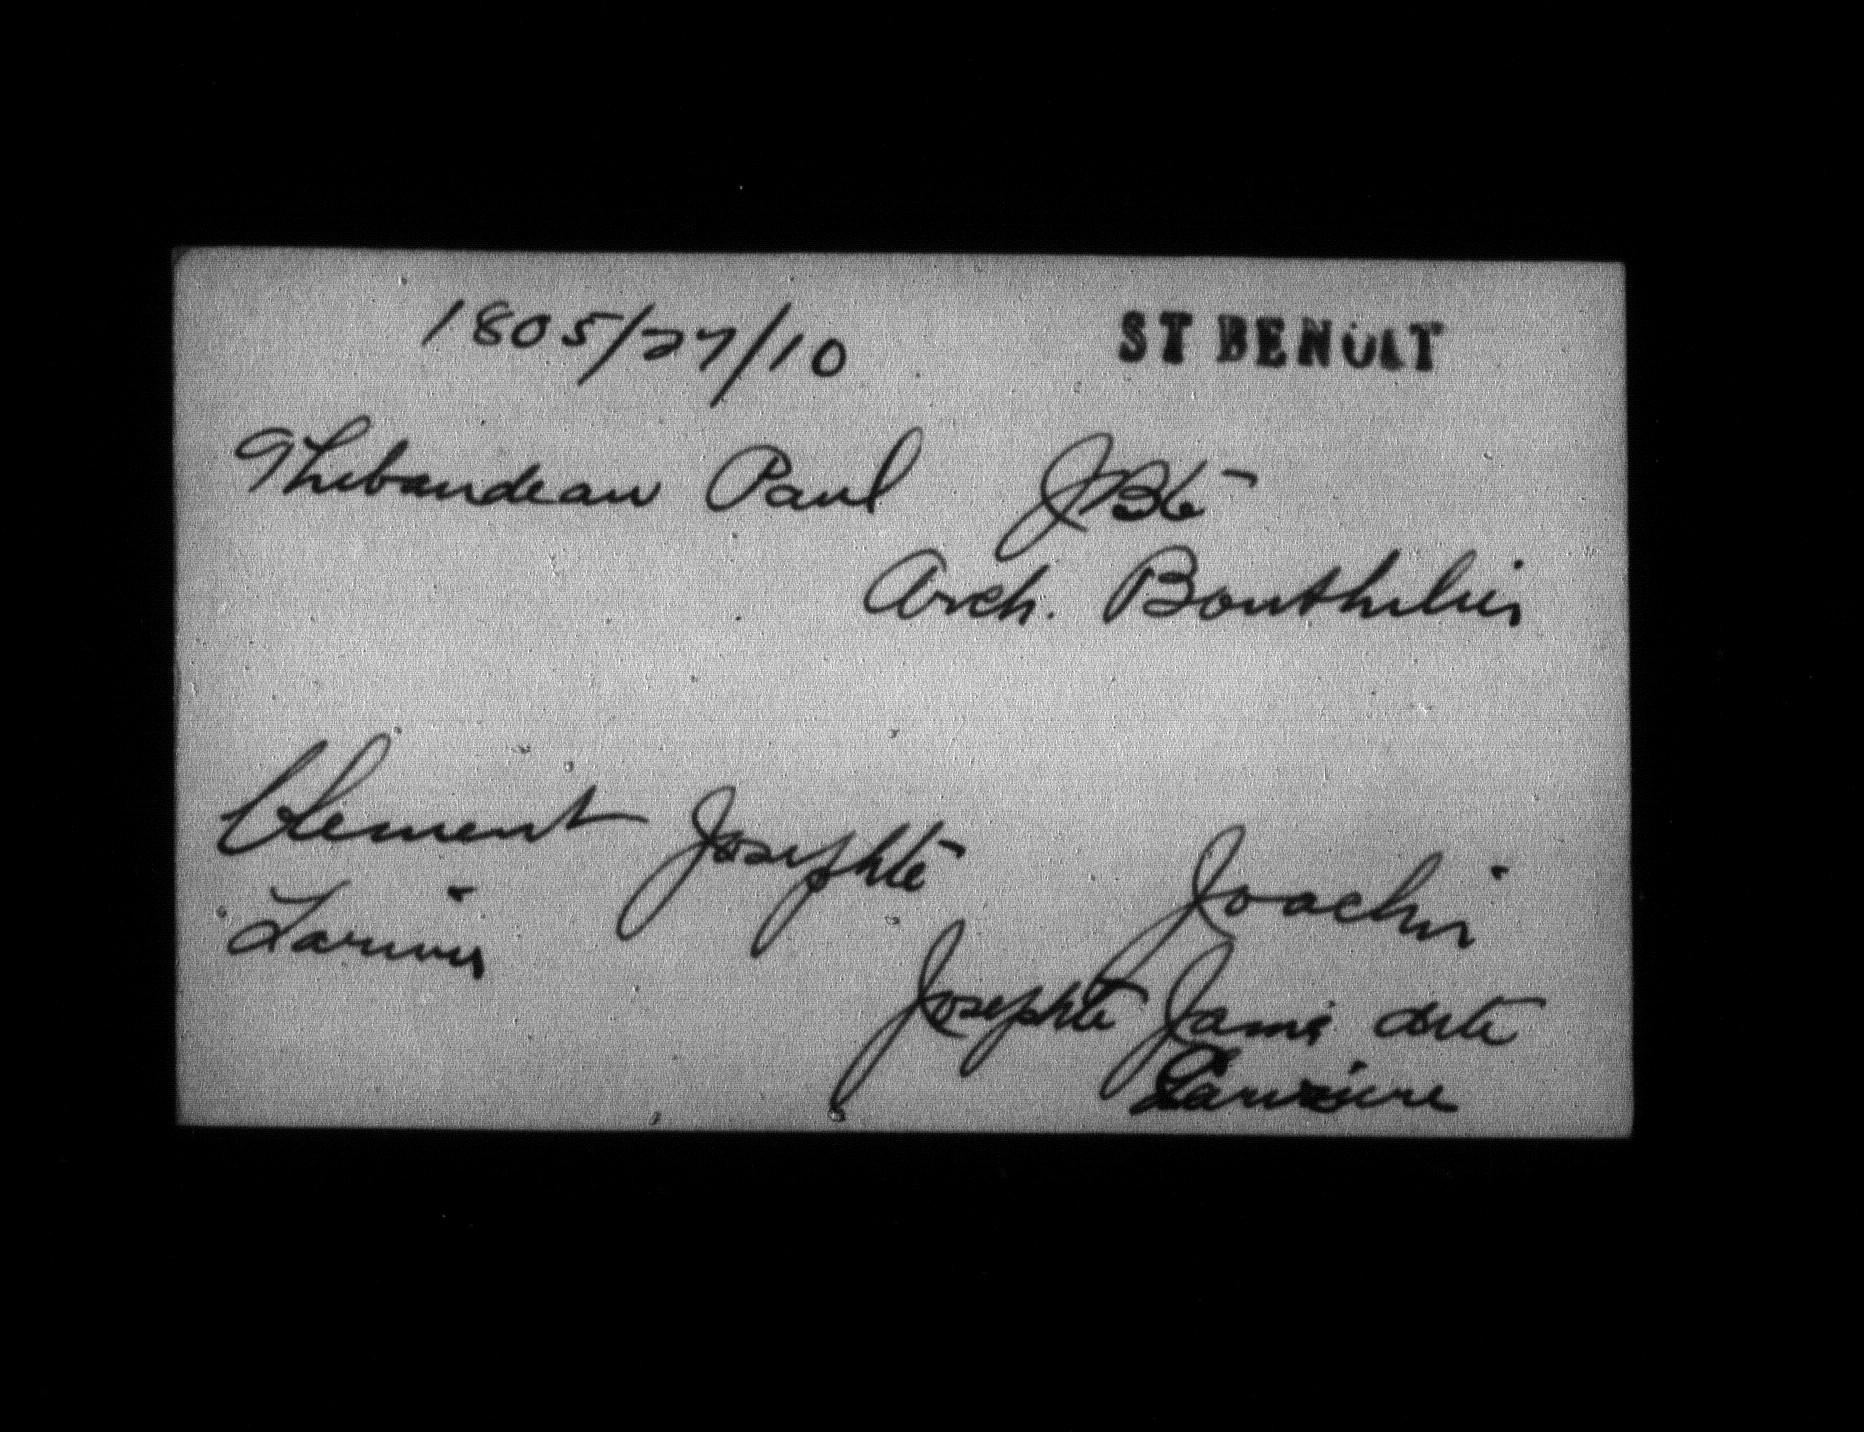 1805/27/10 ST BENOIT
Thibaudeau Paul JBte
Arch. Bouthilier
Clement Josephte Joachim
Larivier
Josephte Jamé dite
Larivière